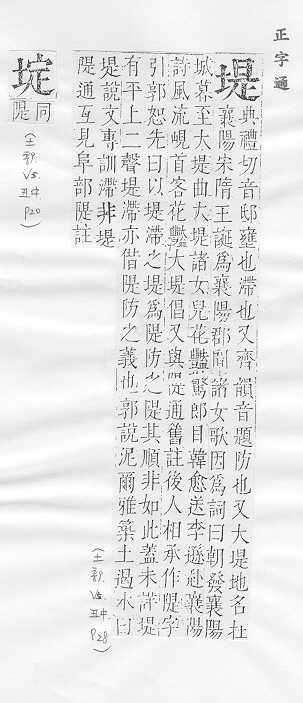 正字通
堤
典禮切音邸壅也滯也又齊韻音題防也又大堤地名杜
襄陽宋隋王誕爲襄陽郡聞諸女歌因爲詞曰朝發襄陽
城暮至大堤曲大堤諸女兒花豔驚郎目韓愈送李遜赴襄陽
詩風流峴首客花豔大堤倡又與隄通舊註後人相承作隄字
引郭恕先曰以堤滯之堤爲隄防之隄其順非如此蓋未詳堤
有平上二聲堤滯亦借隄防之義也郭說泥爾雅築土遏水曰
堤說文專訓滯非堤
隄通互見阜部隄註
(土部 Vs. 丑中. P28)
埞
同隄
(土部 Vs. 丑中. P20)